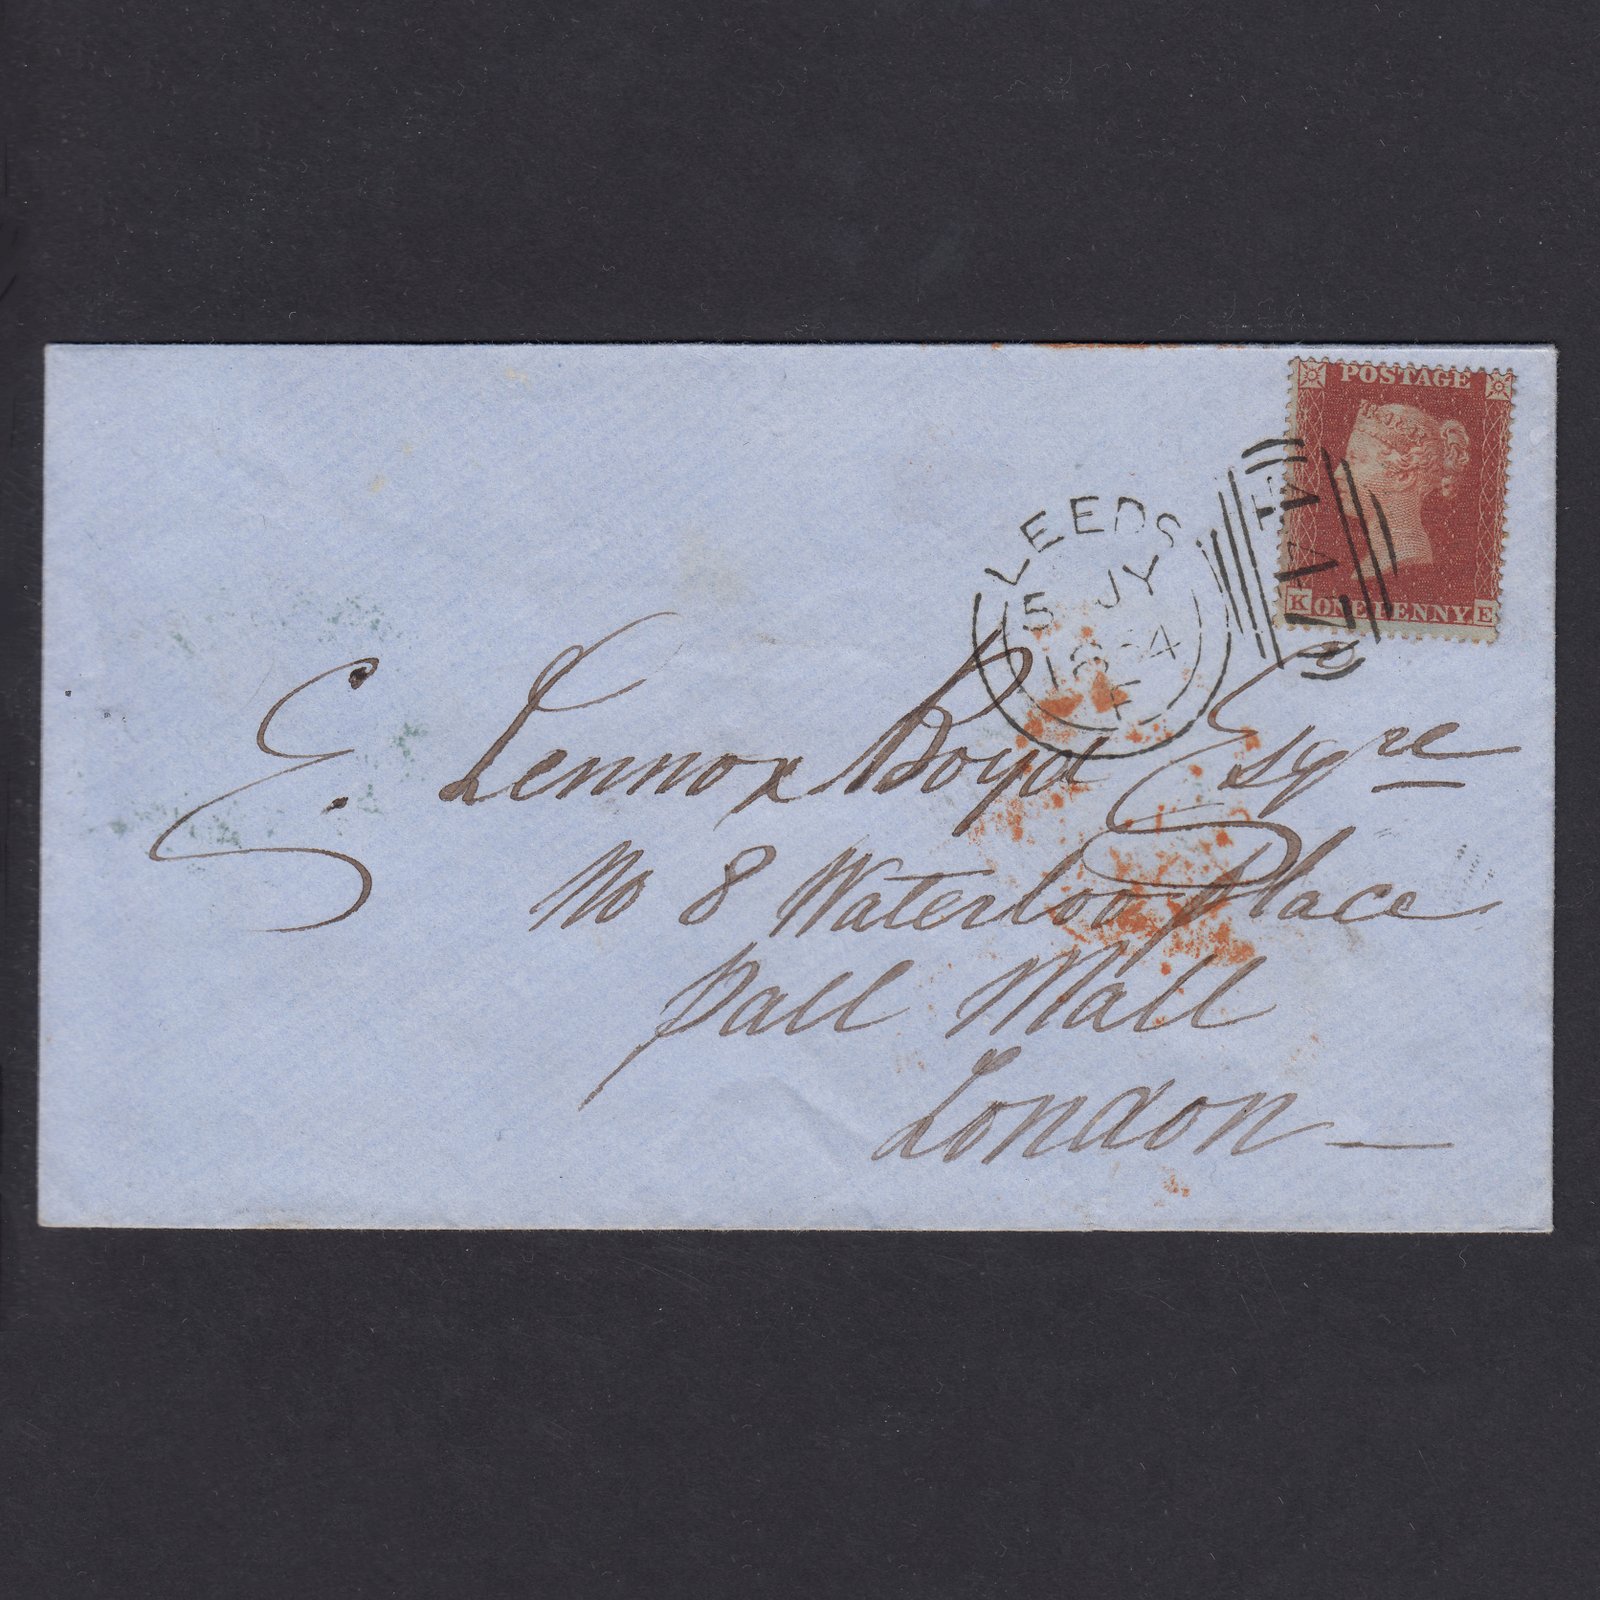 POSTAGE
K ONE PENNY. E
LEEDS
5 JY
1854
E. Lennox Boyd Esqre
No 8 Waterloo Place
Pall Mall
London